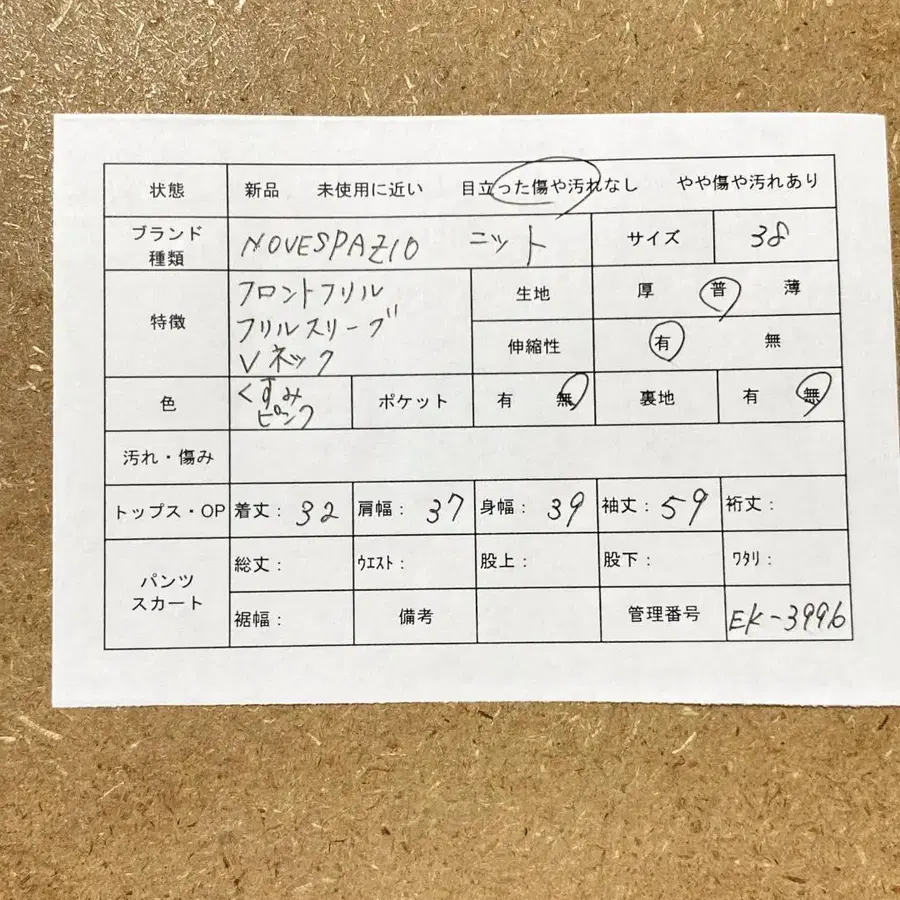 状態 新品 未使用に近い 目立った傷や汚れなし やや傷や汚れあり
ブランド
種類 NOVESPAZIO ニット サイズ 38
特徴 フロントフリル
フリルスリーブ
Vネック
生地 厚 普 薄
伸縮性 有 無
色 くすみ
ピンク
ポケット 有 無 裏地 有 無
汚れ・傷み
トップス・OP 着丈: 32 肩幅: 37 身幅: 39 袖丈: 59 裄丈:
パンツ
スカート
総丈: ウエスト: 股上: 股下: ワタリ:
裾幅: 備考 管理番号 EK-3996